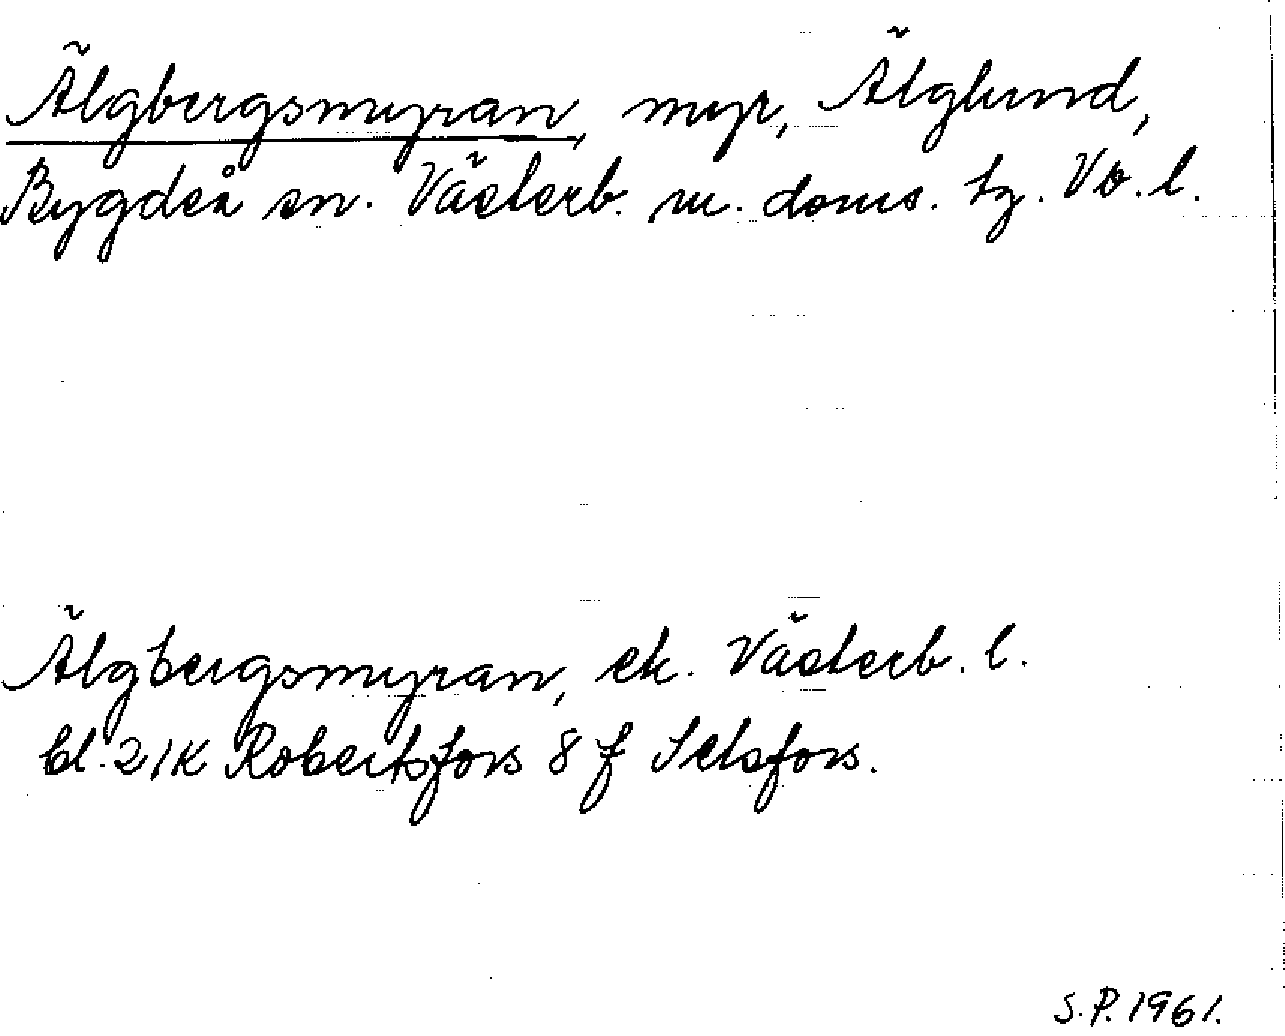 Älgbergsmyran, myr, Älglund,
Bygdeå sn. Västerb. m. doms. tg. Vb. l.
Älgbergsmyran, ek. Västerb. l.
bl. 21K Robertsfors 8 f Selsfors.
S.P. 1961.